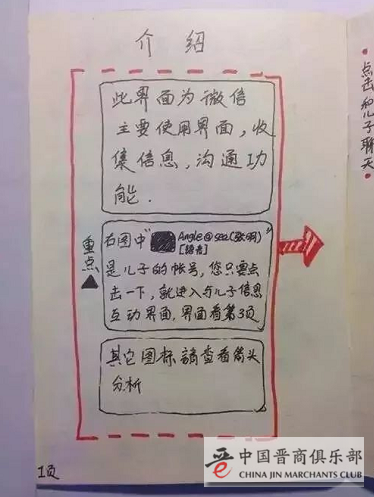 介 绍
此界面为微信
主要使用界面，收
集信息，沟通功
能.
重点
右图中"Angle@sea(张明)"
[语音]
是儿子的帐号，您只要点
击一下，就进入与儿子信息
互动界面，界面看第3页
其它图标请查看箭头
分析
1页
点击和儿子聊天
晋 中国晋商俱乐部
CHINA JIN MARCHANTS CLUB